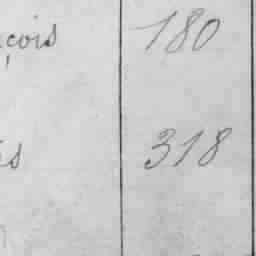 çois 180
s 318